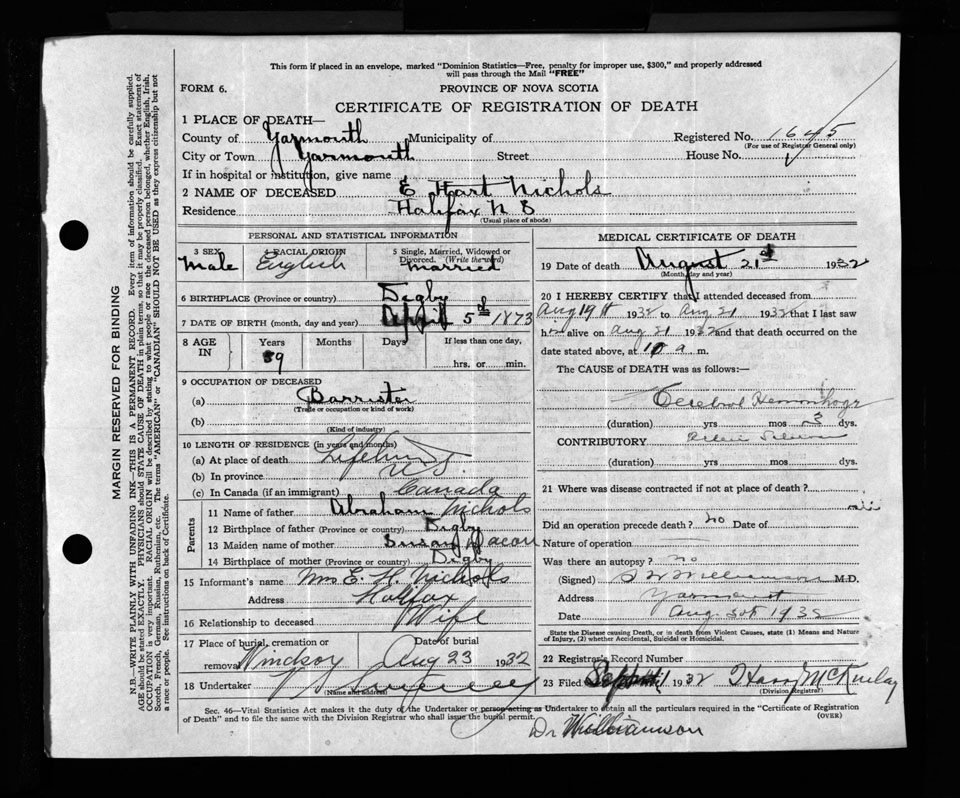 This form if placed in an envelope, marked "Dominion Statistics—Free, penalty for improper use, $300," and properly addressed
will pass through the Mail "FREE"
FORM 6.
PROVINCE OF NOVA SCOTIA
CERTIFICATE OF REGISTRATION OF DEATH
1 PLACE OF DEATH—
County of Yarmouth Municipality of Registered No. 1645
(For use of Registrar General only)
City or Town Yarmouth Street House No.
If in hospital or institution, give name
2 NAME OF DECEASED E Hart Nichols
Residence Halifax N S
(Usual place of abode)
PERSONAL AND STATISTICAL INFORMATION
3 SEX Male
4 RACIAL ORIGIN English
5 Single, Married, Widowed or Divorced. (Write the word) Married
6 BIRTHPLACE (Province or country) Digby
7 DATE OF BIRTH (month, day and year) April 5th 1873
8 AGE IN Years 59 Months Days If less than one day, hrs. or min.
9 OCCUPATION OF DECEASED
(a) Barrister
(Trade or occupation or kind of work)
(b)
(Kind of industry)
10 LENGTH OF RESIDENCE (in years and months)
(a) At place of death Lifetime
(b) In province N S.
(c) In Canada (if an immigrant) Canada
Parents
11 Name of father Abraham Nichols
12 Birthplace of father (Province or country) Digby
13 Maiden name of mother Susan Dacon
14 Birthplace of mother (Province or country) Digby
15 Informant's name Mrs E. H. Nichols
Address Halifax
16 Relationship to deceased Wife
17 Place of burial, cremation or removal Windsor Date of burial Aug 23 1932
18 Undertaker
(Name and address)
MEDICAL CERTIFICATE OF DEATH
19 Date of death August 21st 1932
(Month, day and year)
20 I HEREBY CERTIFY that I attended deceased from
Aug 19th 1932 to Aug 21 1932 that I last saw
him alive on Aug 21 1932 and that death occurred on
date stated above, at 10 a m.
The CAUSE of DEATH was as follows:—
Cerebral Hemorrhage
(duration) yrs mos 3 dys.
CONTRIBUTORY
(duration) yrs mos dys.
21 Where was disease contracted if not at place of death?
Did an operation precede death? no Date of
Nature of operation
Was there an autopsy? no
(Signed) Williamson M.D.
Address Yarmouth
Date Aug 30th 1932
State the Disease causing Death, or in death from Violent Causes, state (1) Means and Nature
of Injury, (2) whether Accidental, Suicidal or Homicidal.
22 Registrar's Record Number
23 Filed Sept 1 1932 Harry McKinlay
(Division Registrar)
Sec. 46—Vital Statistics Act makes it the duty of the Undertaker or person acting as Undertaker to obtain all the particulars required in the "Certificate of Registration
of Death" and to file the same with the Division Registrar who shall issue the burial permit.
(OVER)
Dr Williamson
MARGIN RESERVED FOR BINDING
N.B.—WRITE PLAINLY WITH UNFADING INK—THIS IS A PERMANENT RECORD. Every item of information should be carefully supplied.
AGE should be stated EXACTLY. PHYSICIANS should STATE CAUSE OF DEATH in plain terms, so that it may be properly classified. Exact statement of
OCCUPATION is very important. RACIAL ORIGIN will be described by stating to what people or race the deceased person belonged, whether English, Irish,
Scotch, French, German, Russian, Ruthenian, etc. The terms "AMERICAN" or "CANADIAN" SHOULD NOT BE USED as they express citizenship but not
a race or people. See instructions on back of Certificate.